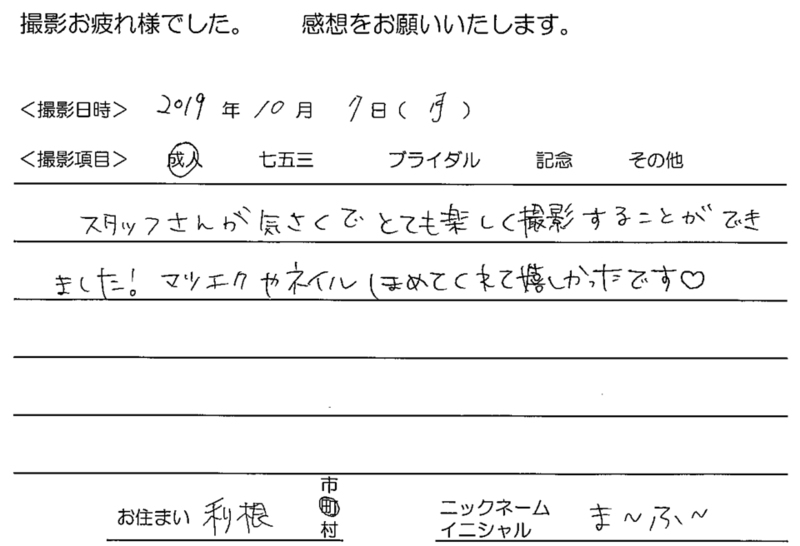 撮影お疲れ様でした。 感想をお願いいたします。
<撮影日時> 2019年10月7日(月)
<撮影項目> 成人 七五三 ブライダル 記念 その他
スタッフさんが気さくでとても楽しく撮影することができ
ました!マツエクやネイルほめてくれて嬉しかったです♡
お住まい 利根 市町村
ニックネーム イニシャル ま〜ふ〜